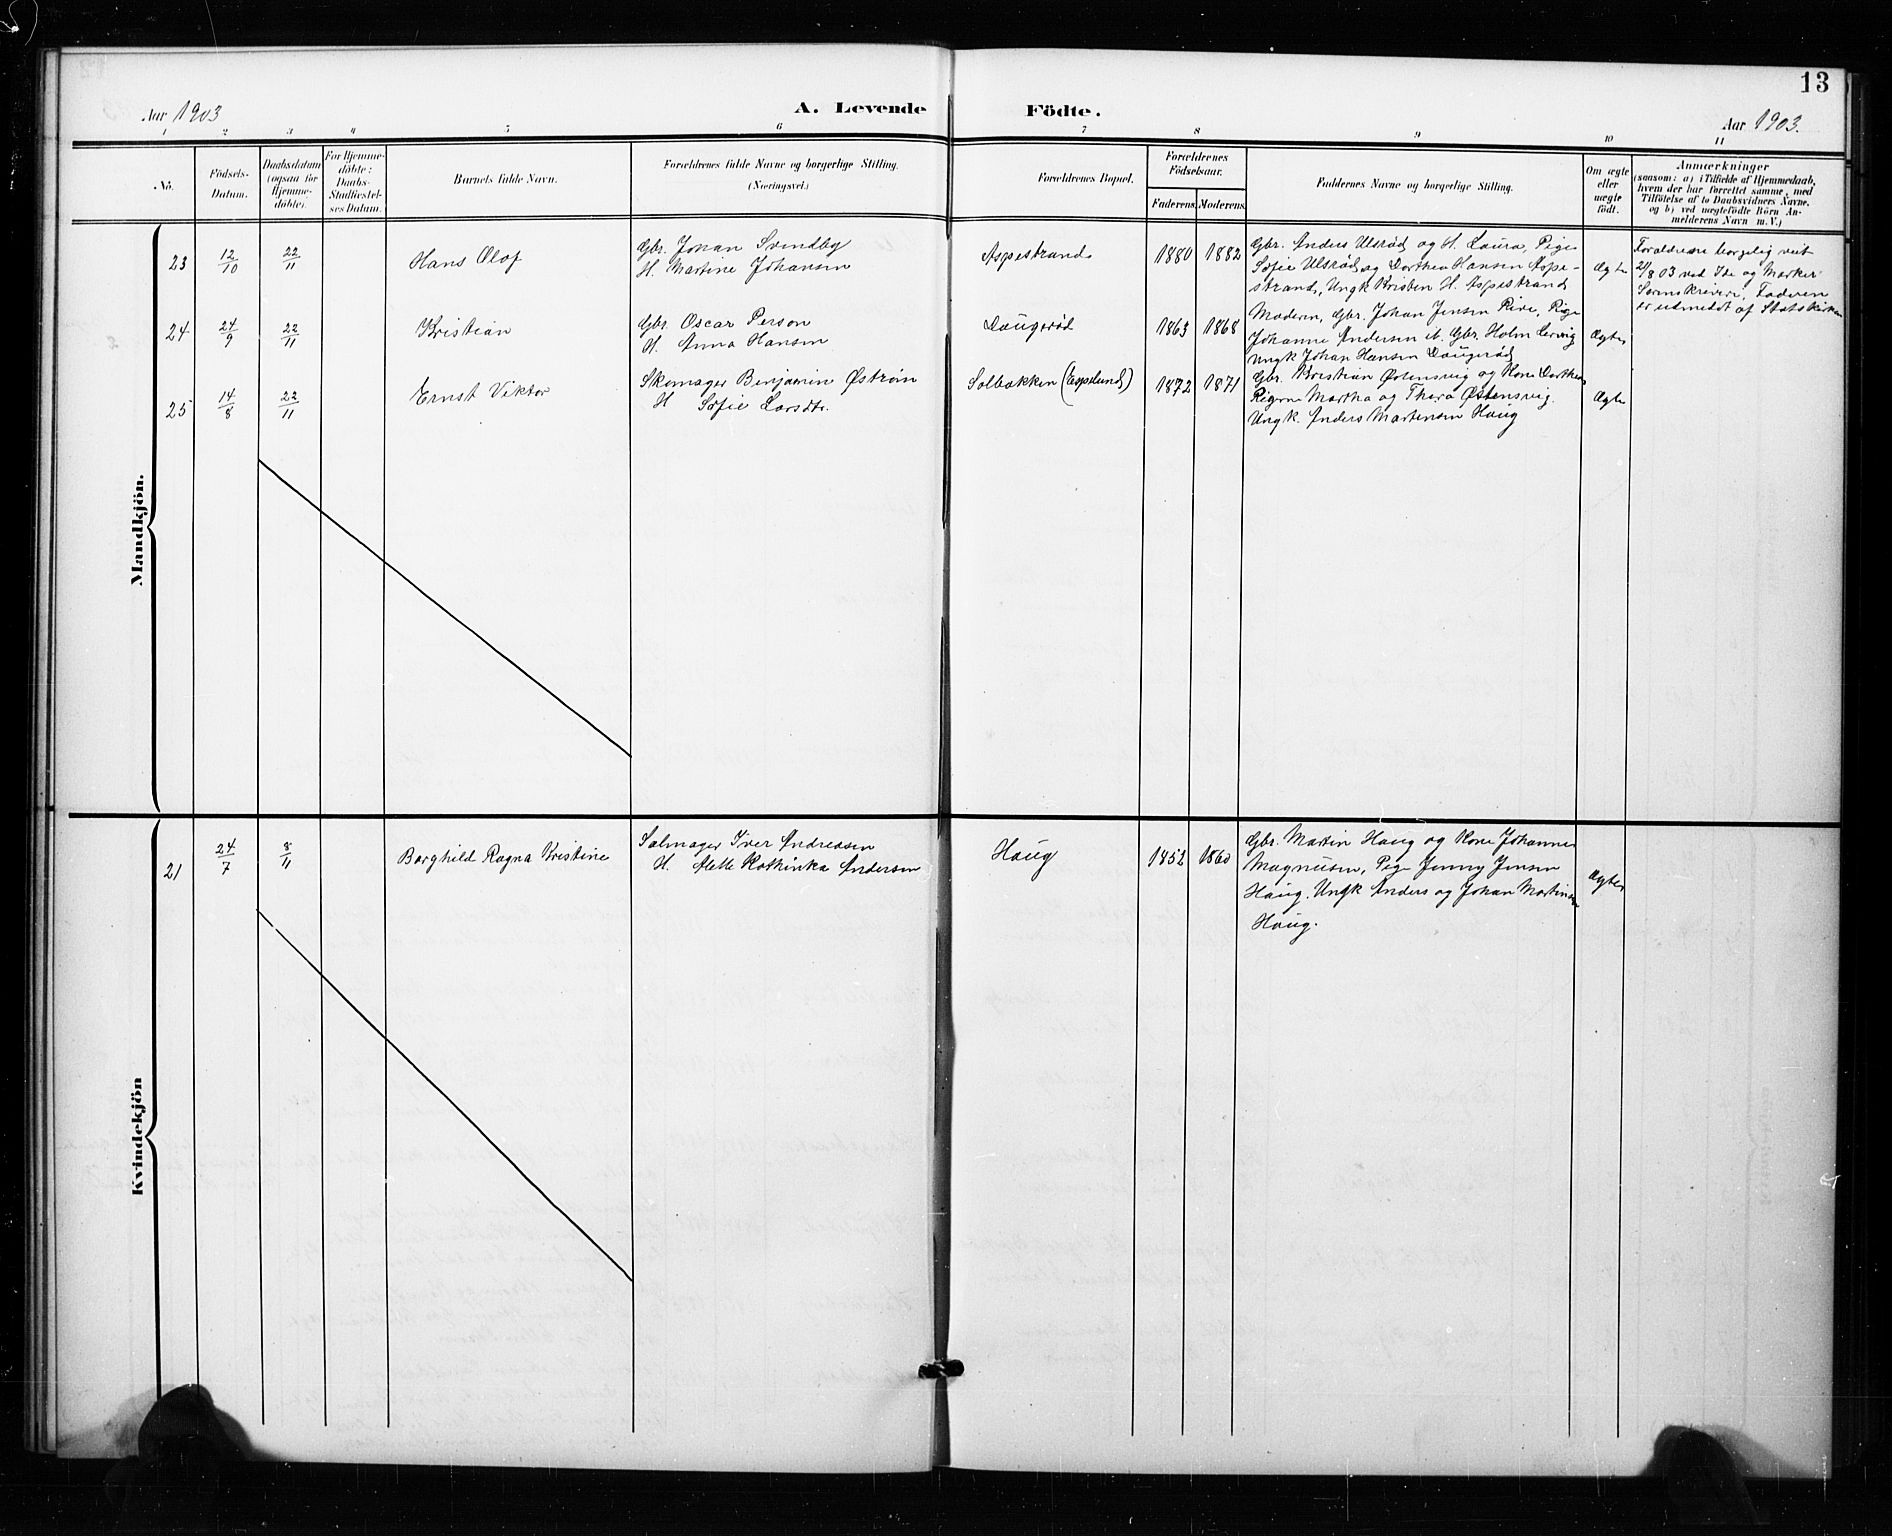 13
Aar 1903
A. Levende Födte.
Aar 1903.
1 2 3 4 5 6 7 8 9 10 11
No.
Födsels-
Datum.
Daabsdatum
(ogsaa for
Hjemme-
döbte).
For Hjemme-
döbte:
Daabs-
Stadfæstel-
ses Datum.
Barnets fulde Navn.
Forældrenes fulde Navne og borgerlige Stilling.
(Næringsvei.)
Forældrenes Bopæl.
Forældrenes
Födselsaar.
Faderens. Moderens.
Faddernes Navne og borgerlige Stilling.
Om ægte
eller
uægte
födt.
Anmærkninger
(saasom: a) i Tilfælde af Hjemmedaab,
hvem der har forrettet samme, med
Tilföielse af to Daabsvidners Navne,
og b) ved uægtefödte Börn An-
melderens Navn m. V.)
Mandkjön.
23
12/10
22/11
Hans Olaf
Gbr. Johan Svendby
H. Martine Johansen
Aspestrand
1880 1882
Gbr. Anders Ulsrød og H. Laura, Pige
Sofie Ulsrød og Dorthea Hansen Aspe-
strand, Ungk Kristen H. Aspestrand
Ægte
Forældrene borgelig viet
2/8 03 ved Ide og Marker
Sorenskriveri. Faderen
er udmeldt af Statskirken
24
24/9
22/11
Kristian
Gbr. Oscar Person
H. Anna Hansen
Daugerød
1863 1868
Moderen, Gbr. Johan Jensen, Pige
Johanne Andersen ib. Gbr. Holm
Ungk Johan Hansen Daugerød
Ægte
25
14/8
22/11
Ernst Viktor
Skomager Benjamin Østrøm
H. Sofie Larsdtr.
Solbakken (Espelund)
1872 1871
Gbr. Kristian Østensvig og Kone Dorthea
Pigerne Martha og Thora Østensvig.
Ungk. Anders Martensen Haug
Ægte
Kvindekjön
21
24/7
8/11
Borghild Ragna Kristine
Salmager Iver Andreasen
H. Alette Kathinka Andersen
Haug
1852 1860
Gbr. Martin Haug og Kone Johanne
Magnusen, Pige Jenny Jensen
Haug. Ungk Anders og Johan Martinsen
Haug.
Ægte